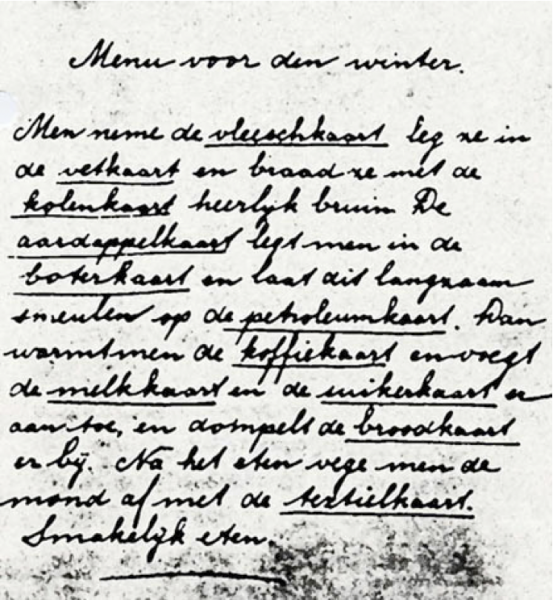 Menu voor den winter.
Men neme de vleeschkaart leg ze in
de vetkaart en braad ze met de
kolenkaart heerlijk bruin De
aardappelkaart legt men in de
boterkaart en laat dit langzaam
smeulen op de petroleumkaart. Dan
warmt men de koffiekaart en voegt
de melkkaart en de suikerkaart er
aan toe, en dompelt de broodkaart
er bij. Na het eten vege men de
mond af met de textielkaart.
Smakelijk eten.